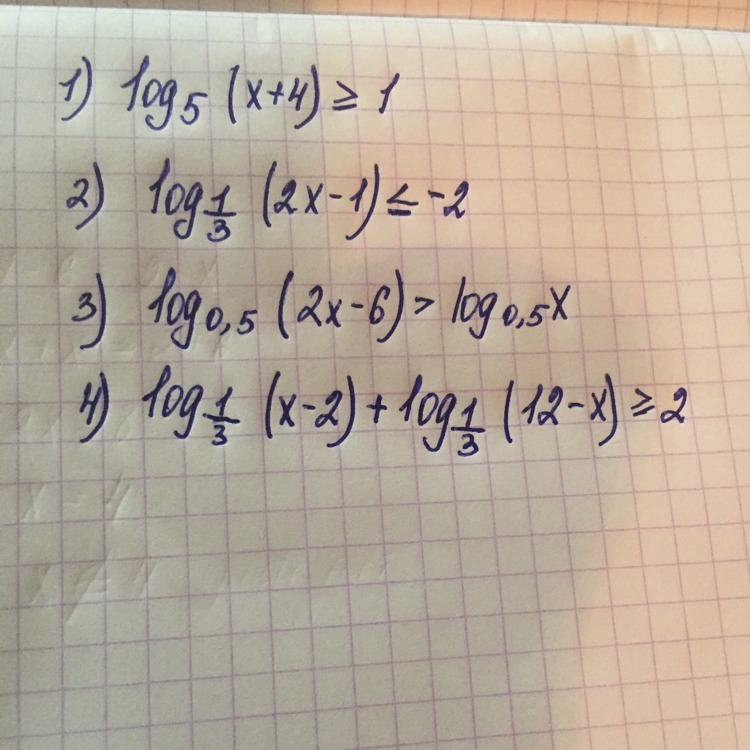 1) log₅ (x+4) ≥ 1
2) log_{1/3} (2x-1) ≤ -2
3) log₀,₅ (2x-6) > log₀,₅ x
4) log_{1/3} (x-2) + log_{1/3} (12-x) ≥ 2